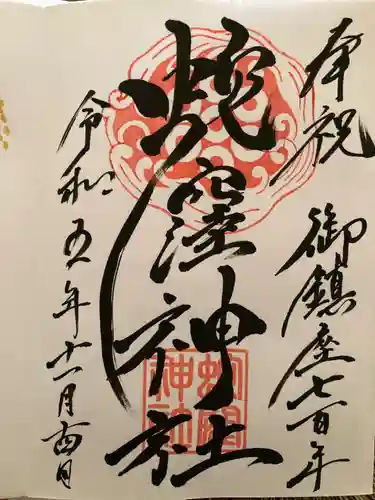 奉祝
御鎮座七百年
蛇窪神社
令和五年十一月十四日
蛇窪
神社